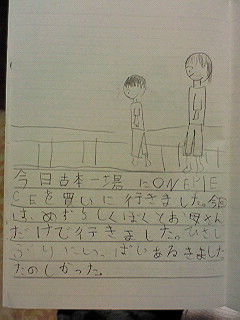 今日古本一場にONEPIE
CEを買いに行きました。今回
は、めずらしくぼくとお母さん
だけで行きました。ひさし
ぶりにいっぱいあるきました
たのしかった。